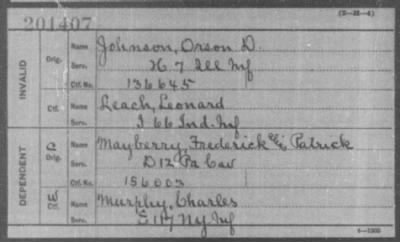 201407
(3-25-4)
INVALID
Orig.
Name Johnson, Orson D.
Serv. H 7 Ill Inf
Ctf. No. 136645
Ctf.
Name Leach, Leonard
Serv. I 66 Ind. Inf
DEPENDENT
C Orig.
Name Mayberry, Frederick Patrick
Serv. D 12 Pa Cav
Ctf. No. 156003
W Ctf.
Name Murphy, Charles
Serv. E 117 Ny Inf